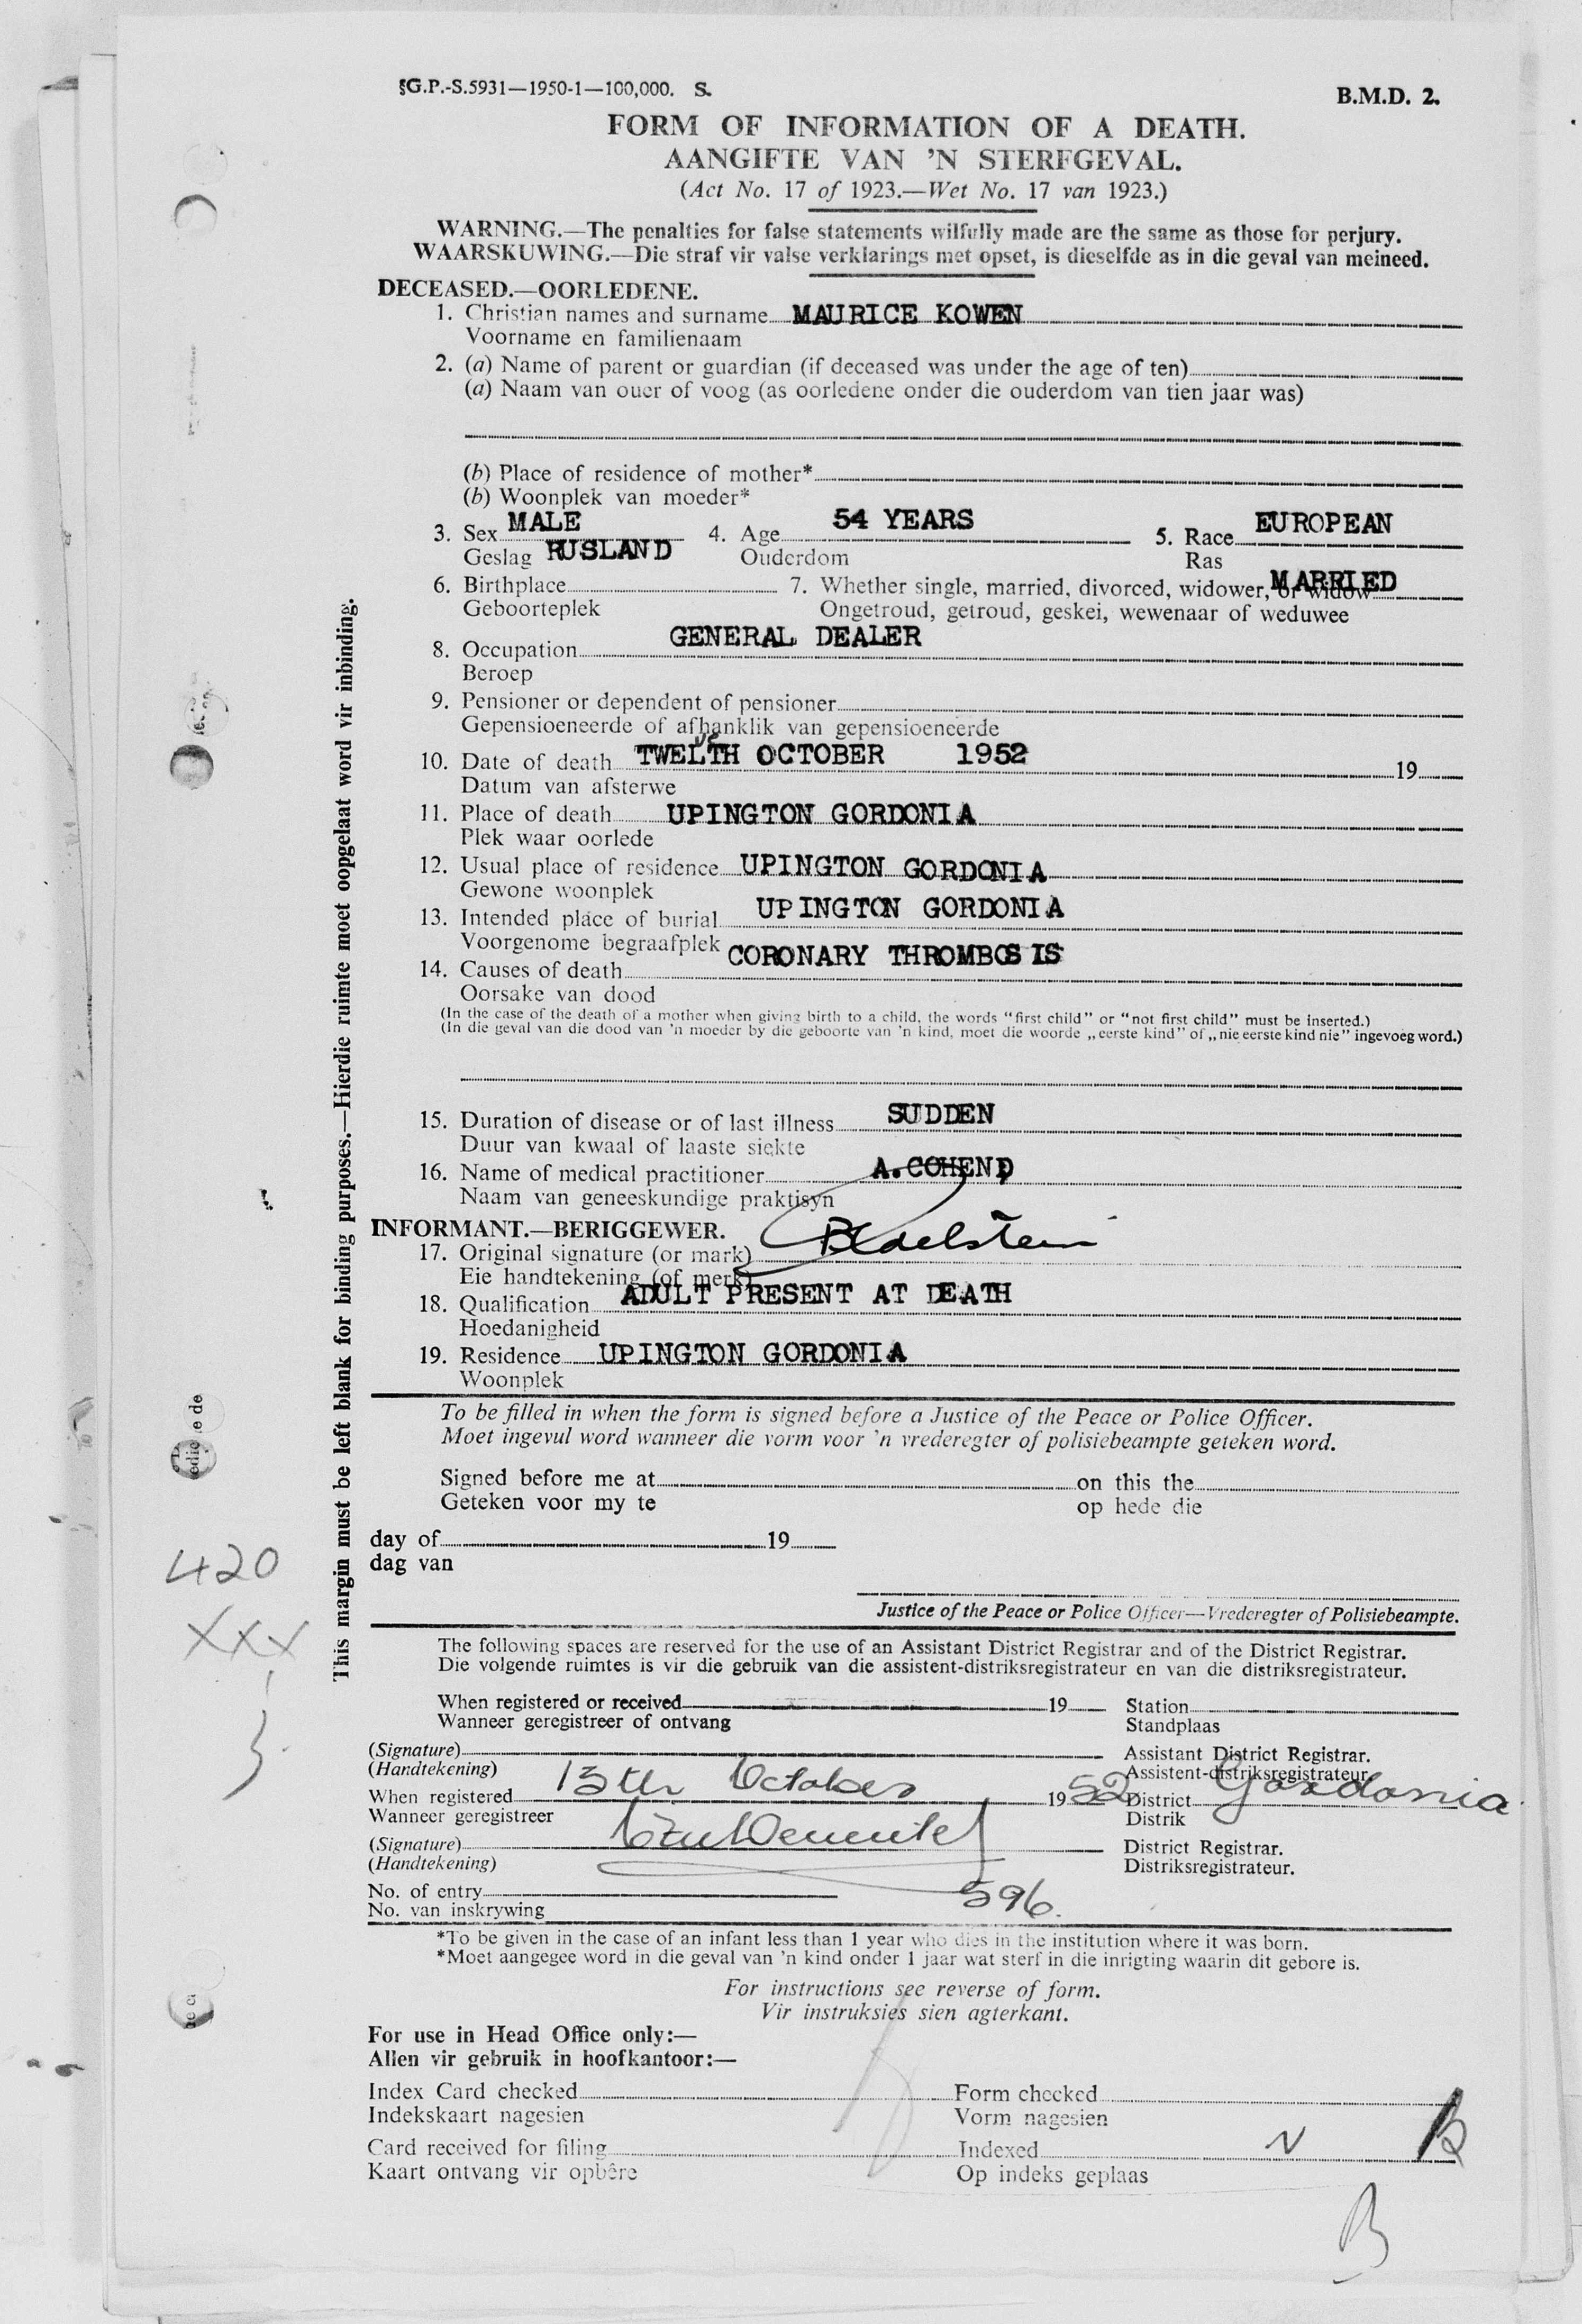 §G.P.-S.5931—1950-1—100,000. S.
B.M.D. 2.
FORM OF INFORMATION OF A DEATH.
AANGIFTE VAN 'N STERFGEVAL.
(Act No. 17 of 1923.—Wet No. 17 van 1923.)
WARNING.—The penalties for false statements wilfully made are the same as those for perjury.
WAARSKUWING.—Die straf vir valse verklarings met opset, is dieselfde as in die geval van meineed.
DECEASED.—OORLEDENE.
1. Christian names and surname MAURICE KOWEN
Voorname en familienaam
2. (a) Name of parent or guardian (if deceased was under the age of ten)
(a) Naam van ouer of voog (as oorledene onder die ouderdom van tien jaar was)
(b) Place of residence of mother*
(b) Woonplek van moeder*
3. Sex MALE 4. Age 54 YEARS 5. Race EUROPEAN
Geslag RUSLAND Ouderdom Ras
6. Birthplace 7. Whether single, married, divorced, widower, or widow MARRIED
Geboorteplek Ongetroud, getroud, geskei, wewenaar of weduwee
8. Occupation GENERAL DEALER
Beroep
9. Pensioner or dependent of pensioner
Gepensioeneerde of afhanklik van gepensioeneerde
10. Date of death TWELVETH OCTOBER 1952 19
Datum van afsterwe
11. Place of death UPINGTON GORDONIA
Plek waar oorlede
12. Usual place of residence UPINGTON GORDONIA
Gewone woonplek
13. Intended place of burial UPINGTON GORDONIA
Voorgenome begraafplek
14. Causes of death CORONARY THROMBOSIS
Oorsake van dood
(In the case of the death of a mother when giving birth to a child, the words "first child" or "not first child" must be inserted.)
(In die geval van die dood van 'n moeder by die geboorte van 'n kind, moet die woorde „eerste kind" of „nie eerste kind nie" ingevoeg word.)
15. Duration of disease or of last illness SUDDEN
Duur van kwaal of laaste siekte
16. Name of medical practitioner A. COHEND
Naam van geneeskundige praktisyn
INFORMANT.—BERIGGEWER.
17. Original signature (or mark)
Eie handtekening (of merk)
18. Qualification ADULT PRESENT AT DEATH
Hoedanigheid
19. Residence UPINGTON GORDONIA
Woonplek
To be filled in when the form is signed before a Justice of the Peace or Police Officer.
Moet ingevul word wanneer die vorm voor 'n vrederegter of polisiebeampte geteken word.
Signed before me at on this the
Geteken voor my te op hede die
day of 19
dag van
Justice of the Peace or Police Officer—Vrederegter of Polisiebeampte.
This margin must be left blank for binding purposes.—Hierdie ruimte moet oopgelaat word vir inbinding.
420
XXX
The following spaces are reserved for the use of an Assistant District Registrar and of the District Registrar.
Die volgende ruimtes is vir die gebruik van die assistent-distriksregistrateur en van die distriksregistrateur.
When registered or received 19 Station
Wanneer geregistreer of ontvang Standplaas
(Signature) Assistant District Registrar.
(Handtekening) Assistent-distriksregistrateur
When registered 13th October 1952 District Gordonia
Wanneer geregistreer Distrik
(Signature) District Registrar.
(Handtekening) Distriksregistrateur.
No. of entry 596.
No. van inskrywing
*To be given in the case of an infant less than 1 year who dies in the institution where it was born.
*Moet aangegee word in die geval van 'n kind onder 1 jaar wat sterf in die inrigting waarin dit gebore is.
For instructions see reverse of form.
Vir instruksies sien agterkant.
For use in Head Office only:—
Allen vir gebruik in hoofkantoor:—
Index Card checked Form checked
Indekskaart nagesien Vorm nagesien
Card received for filing Indexed
Kaart ontvang vir opbêre Op indeks geplaas